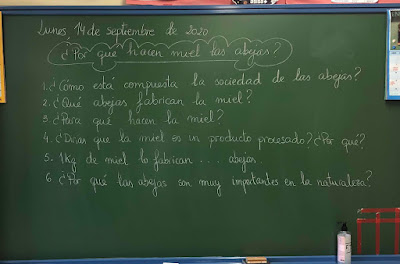 Lunes, 14 de septiembre de 2020
¿Por qué hacen miel las abejas?
1. ¿Cómo está compuesta la sociedad de las abejas?
2. ¿Qué abejas fabrican la miel?
3. ¿Para qué hacen la miel?
4. ¿Dirías que la miel es un producto procesado? ¿Por qué?
5. 1 Kg de miel lo fabrican . . . abejas.
6. ¿Por qué las abejas son muy importantes en la naturaleza?